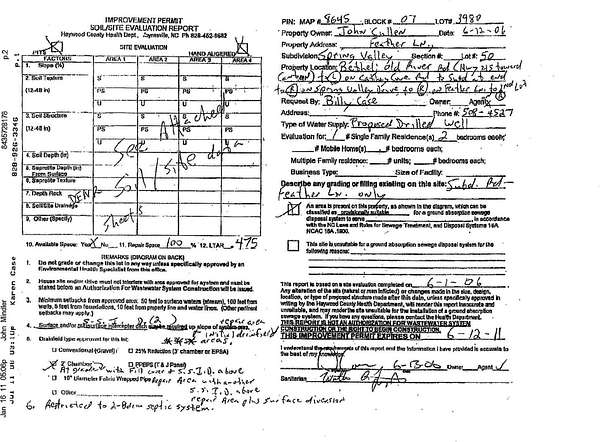 IMPROVEMENT PERMIT
SOIL/SITE EVALUATION REPORT
Haywood County Health Dept., Waynesville, NC Ph 828-452-6682
SITE EVALUATION
PITS
HAND AUGERED
FACTORS AREA 1 AREA 2 AREA 3 AREA 4
1. Slope (%)
2. Soil Texture S S S S
(12-48 in) PS PS PS PS
U U U U
3. Soil Structure S S S S
(12-48 in) PS PS PS PS
U U U U
4. Soil Depth (in)
5. Saprolite Depth (in)
From Surface
6. Saprolite Texture
7. Depth Rock
8. Soil/Site Drainage
9. Other (Specify)
See Attached
DENR Soil/site data
sheets
10. Available Space: Yes X No 11. Repair Space 100 % 12. LTAR .475
REMARKS (DIAGRAM ON BACK)
1. Do not grade or change this lot in any way unless specifically approved by an
Environmental Health Specialist from this office.
2. House site and/or drive must not interfere with area approved for system and must be
staked before an Authorization For Wastewater System Construction will be issued.
3. Minimum setbacks from approved area: 50 feet to surface waters (stream), 100 feet from
wells, 5 feet from foundations, 10 feet from property line and water lines. (Other pertinent
setbacks may apply.)
4. Surface and/or subsurface interceptor ditch required up slope of system area.
repair area
initial drainfield
areas.
5. Drainfield type approved for this lot:
Conventional (Gravel) 25% Reduction (3' chamber or EPSA)
Chamber PPBPS (T & J Panel)
At grade with Fill cover & S.S.I.D. above
10" Diameter Fabric Wrapped Pipe Repair Area with another
Other S.S.I.D. above
repair Area plus surface diversion
6. Restricted to 2-Bdrm septic system.
PIN: MAP # 8645 BLOCK # 07 LOT# 3980
Property Owner: John Cullen Date 6-12-06
Property Address: Feather Ln,
Subdivision Spring Valley Section #: Lot #: 50
Property Location: Bethel: Old River Rd (Hwy 215 toward
to L on Cathey Cove Rd to Subd at end
to R on Spring Valley Drive to R on Feather Ln to Lot
Request By: Billy Case Owner Agent
Address: Phone #: 508-4527
Type of Water Supply: Proposed Drilled Well
Evaluation for: 1 # Single Family Residence(s) 2 bedrooms each;
# Mobile Home(s) # bedrooms each;
Multiple Family residence: # units; # bedrooms each;
Business Type: Size of Facility:
Describe any grading or filling existing on this site: Subd. Rd-
Feather Ln. only
An area is present on this property, as shown in the diagram, which can be
classified as provisionally suitable for a ground absorption sewage
disposal system to serve , in accordance
with the NC Laws and Rules for Sewage Treatment, and Disposal Systems 18A
NCAC 18A.1900.
This site is unsuitable for a ground absorption sewage disposal system for the
following reasons:
This report is based on site evaluation completed on 6-1-06
Any alteration of the site (natural or man inflicted) or changes made in the size, design,
location, or type of proposed structure made after this date, unless specifically approved in
writing by the Haywood County Health Department, will render this report inaccurate and
unavailable, and may render the site unsuitable for the installation of a ground absorption
sewage system. If you have any questions, please contact the County Health Department.
THIS REPORT IS NOT AN AUTHORIZATION FOR WASTEWATER SYSTEM
CONSTRUCTION OR THE RIGHT TO BEGIN CONSTRUCTION.
THIS IMPROVEMENT PERMIT EXPIRES ON 6-12-11
I understand the contents of this report and the information I have provided is accurate to
the best of my knowledge.
6-13-06 Owner Agent
Sanitarian
p.2
8435728176
John Mindler
Jan 16 11 05:
p.1
828-926-3346
Karen Case
Jul 11 06